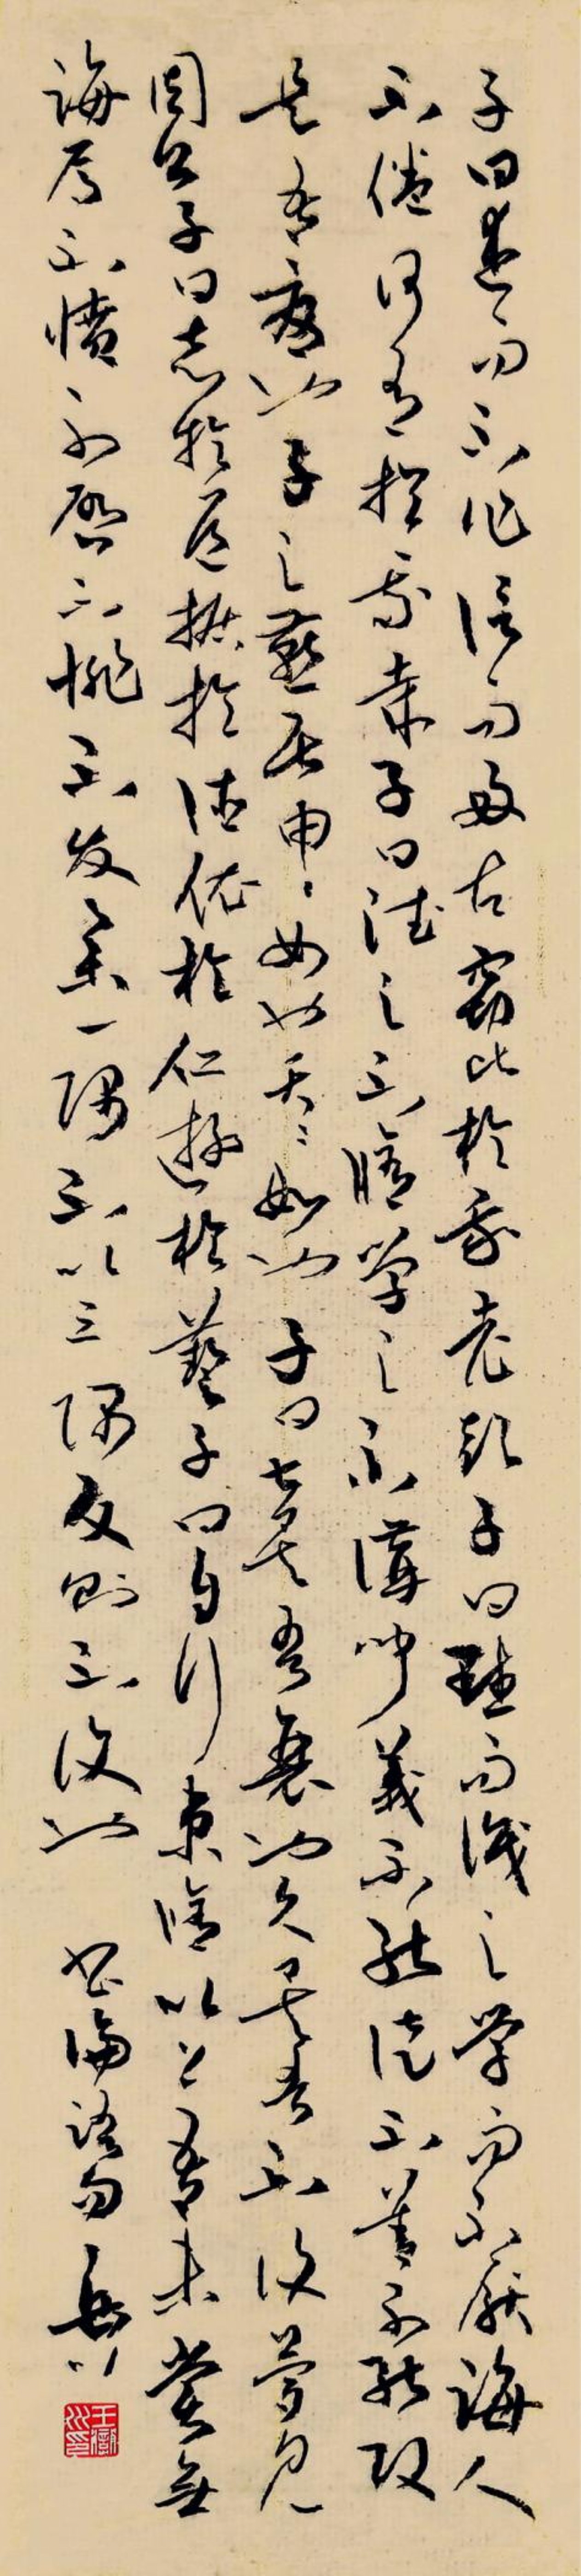 子曰述而不作信而好古窃比於我老彭子曰默而識之学而不厭誨人
不倦何有於我哉子曰德之不脩学之不講聞義不能徙不善不能改
是吾憂也子之燕居申〻如也夭〻如也子曰甚矣吾衰也久矣吾不復夢見
周公子曰志於道據於德依於仁遊於藝子曰自行束脩以上吾未嘗無
誨焉不憤不啓不悱不发舉一隅不以三隅反則不復也 書論語句